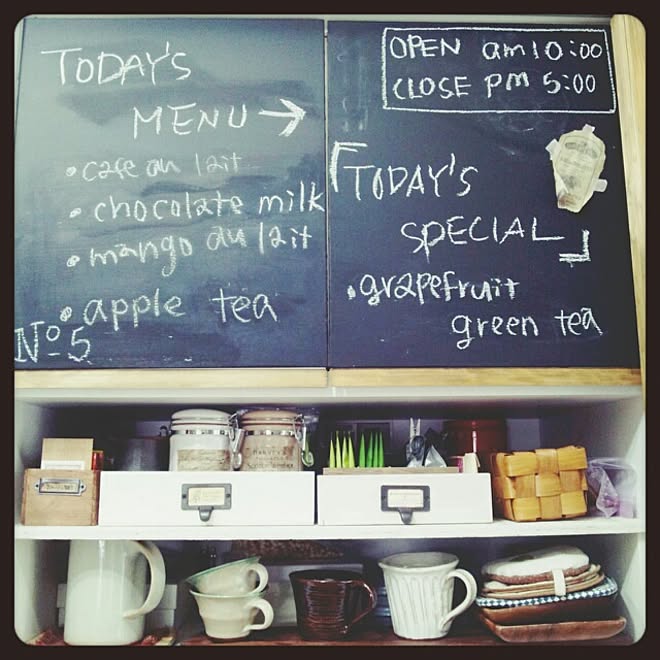 TODAY'S
MENU →
• cafe au lait
• chocolate milk
• mango au lait
• apple tea
Nº5
OPEN am10:00
CLOSE pm 5:00
「TODAY'S
SPECIAL」
• grapefruit
green tea